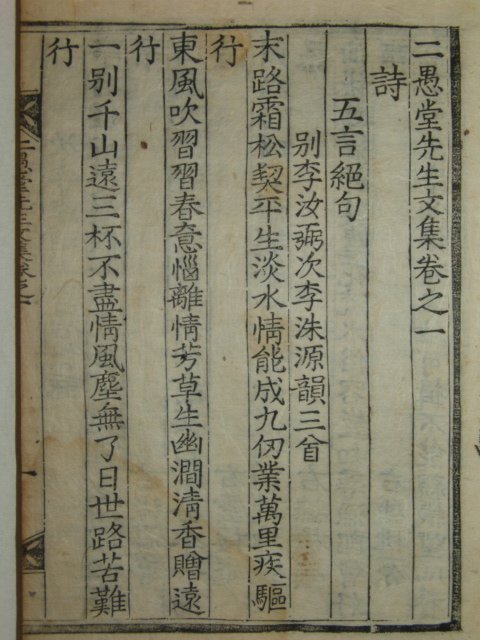 二愚堂先生文集卷之一
詩
五言絕句
別李汝弼次李洙源韻三首
末路霜松契平生淡水情能成九仞業萬里疾驅
行
東風吹習習春意惱離情芳草生幽澗淸香贈遠
行
一別千山遠三杯不盡情風塵無了日世路苦難
行
二愚堂先生文集卷之一
一